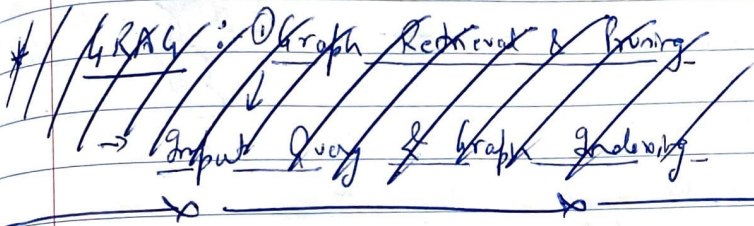 * GRAG : ① Graph Retrieval & Pruning
↓
→ Input Query & Graph Indexing